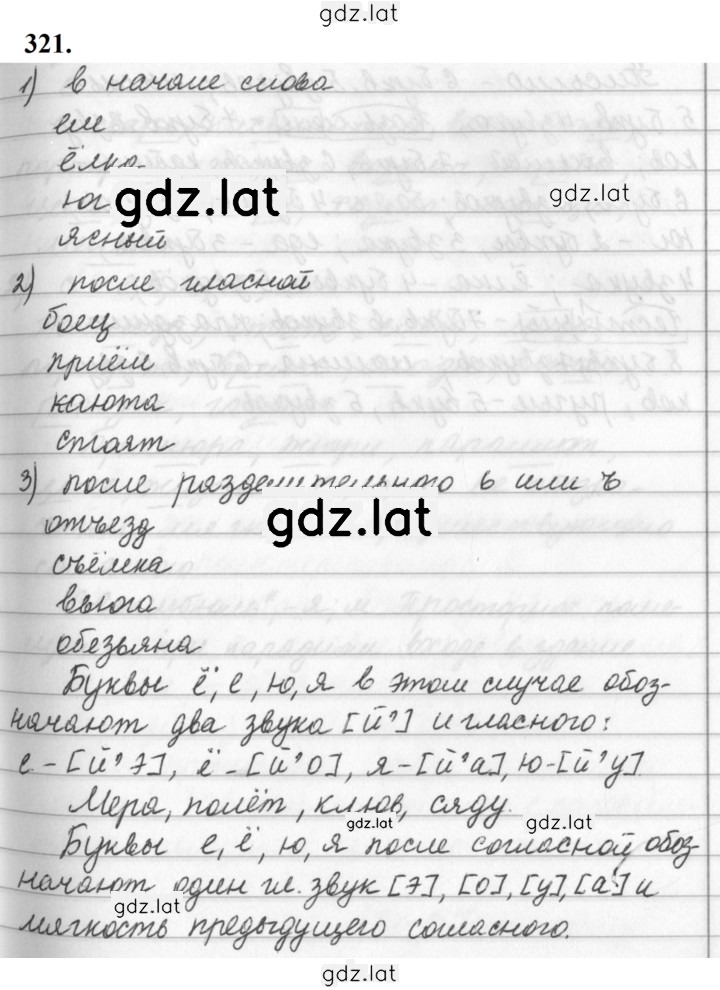 gdz.lat
321.
1) в начале слова
ем
ёлка
юг
gdz.lat
gdz.lat
ясный
2) после гласной
боец
приём
каюта
стоят
3) после разделительного ь или ъ
gdz.lat
отъезд
съёмка
вьюга
обезьяна
Буквы ё, е, ю, я в этом случае обоз-
начают два звука [й'] и гласного:
е - [й'э], ё - [й'о], я - [й'а], ю - [й'у]
Мера, полёт, клюв, сяду.
gdz.lat
gdz.lat
Буквы е, ё, ю, я после согласной обоз-
начают один гл. звук [э], [о], [у], [а] и
gdz.lat
мягкость предыдущего согласного.
gdz.lat